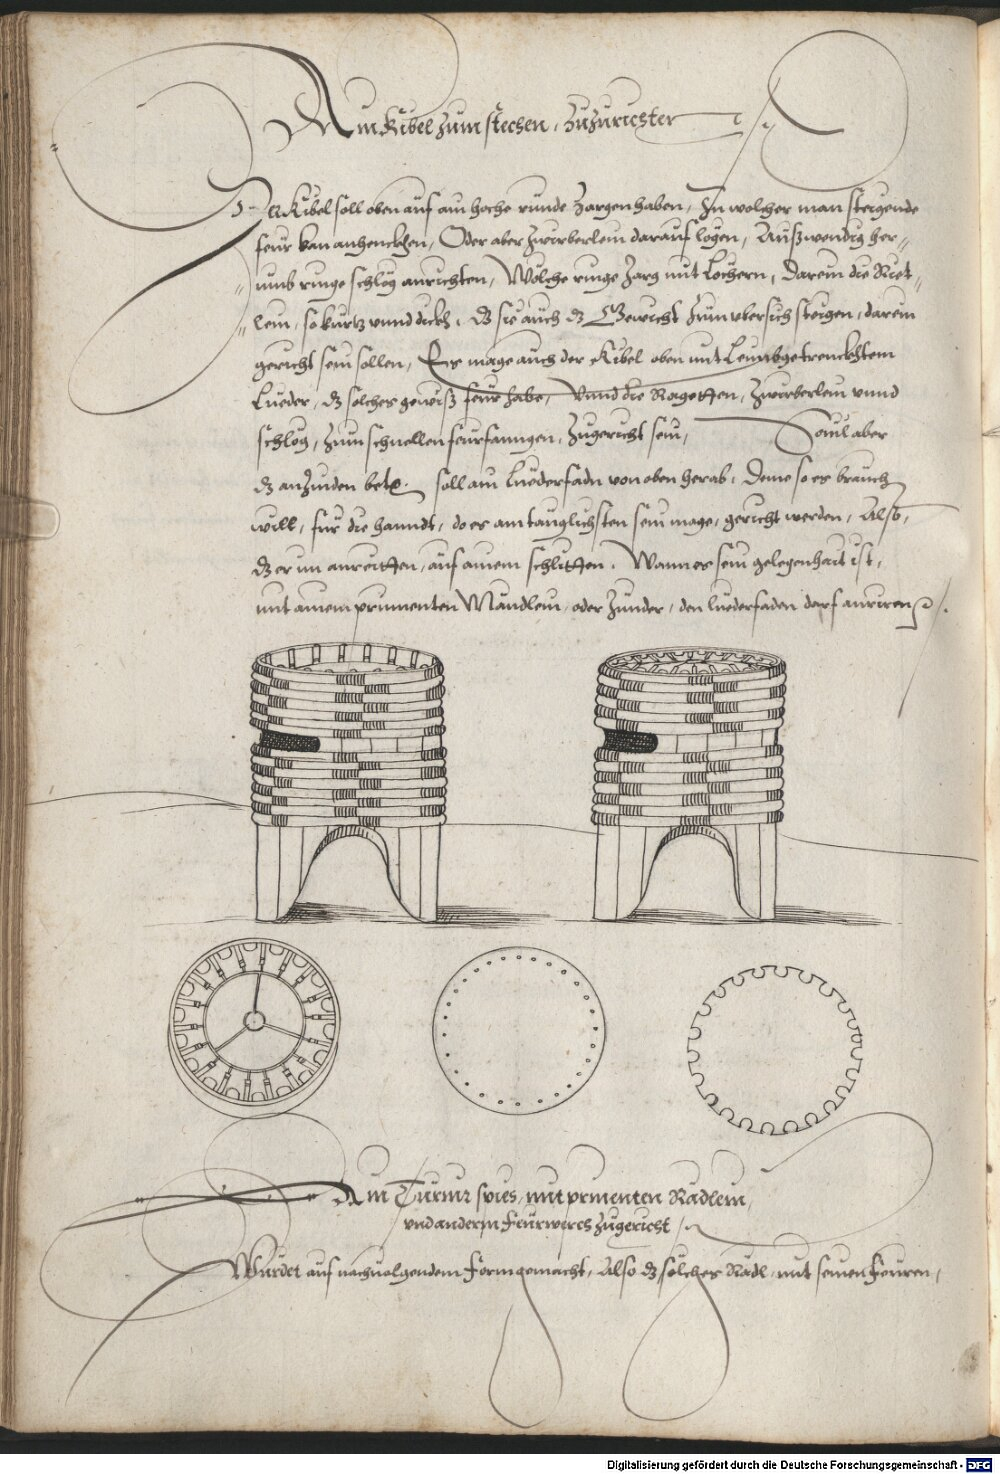 Ain Kibel zum stechen, Zuzurichten
Der Kibel soll oben auf ain hoche runde Zargen haben, In welcher man steigende
feur kan anhenckhen, Oder aber Zwirberlein darauf legen, Außwendig her„
umb ringe schleg anrichten, Wölche ringe Zarg mit Lochern, darein die Raget„
lein, so kurtz unnd dickh, dz sie auch dz Gewicht Zum ubersich steigen, darein
gericht sein sollen, Es mage auch der Kibel oben mit Leimbgetrencktem
Lueder, dz solches gewiß feur habe, Unnd die Ragetten, Zwirberlein unnd
schleg, Zum schnellen feurfanngen, Zugericht sein, Souil aber
dz anZinden soll ain Luederfadn von oben herab, deme so es brauchen
will, für die hanndt, do es am tauglichsten sein mage, gericht werden, Also,
dz er im anreitten, auf ainem schlitten, Wann es sein gelegenhait ist,
mit ainem prinnenten Mändlein oder Zunder, den luederfaden darf anriren
Ain Turnir spies, mit prinenten Rädlein,
und anderm Feurwerch Zugericht
Würdet auf nachuolgendem form gemacht, Also dz solches Rädl, mit seinen feuren,
Digitalisierung gefördert durch die Deutsche Forschungsgemeinschaft - DFG